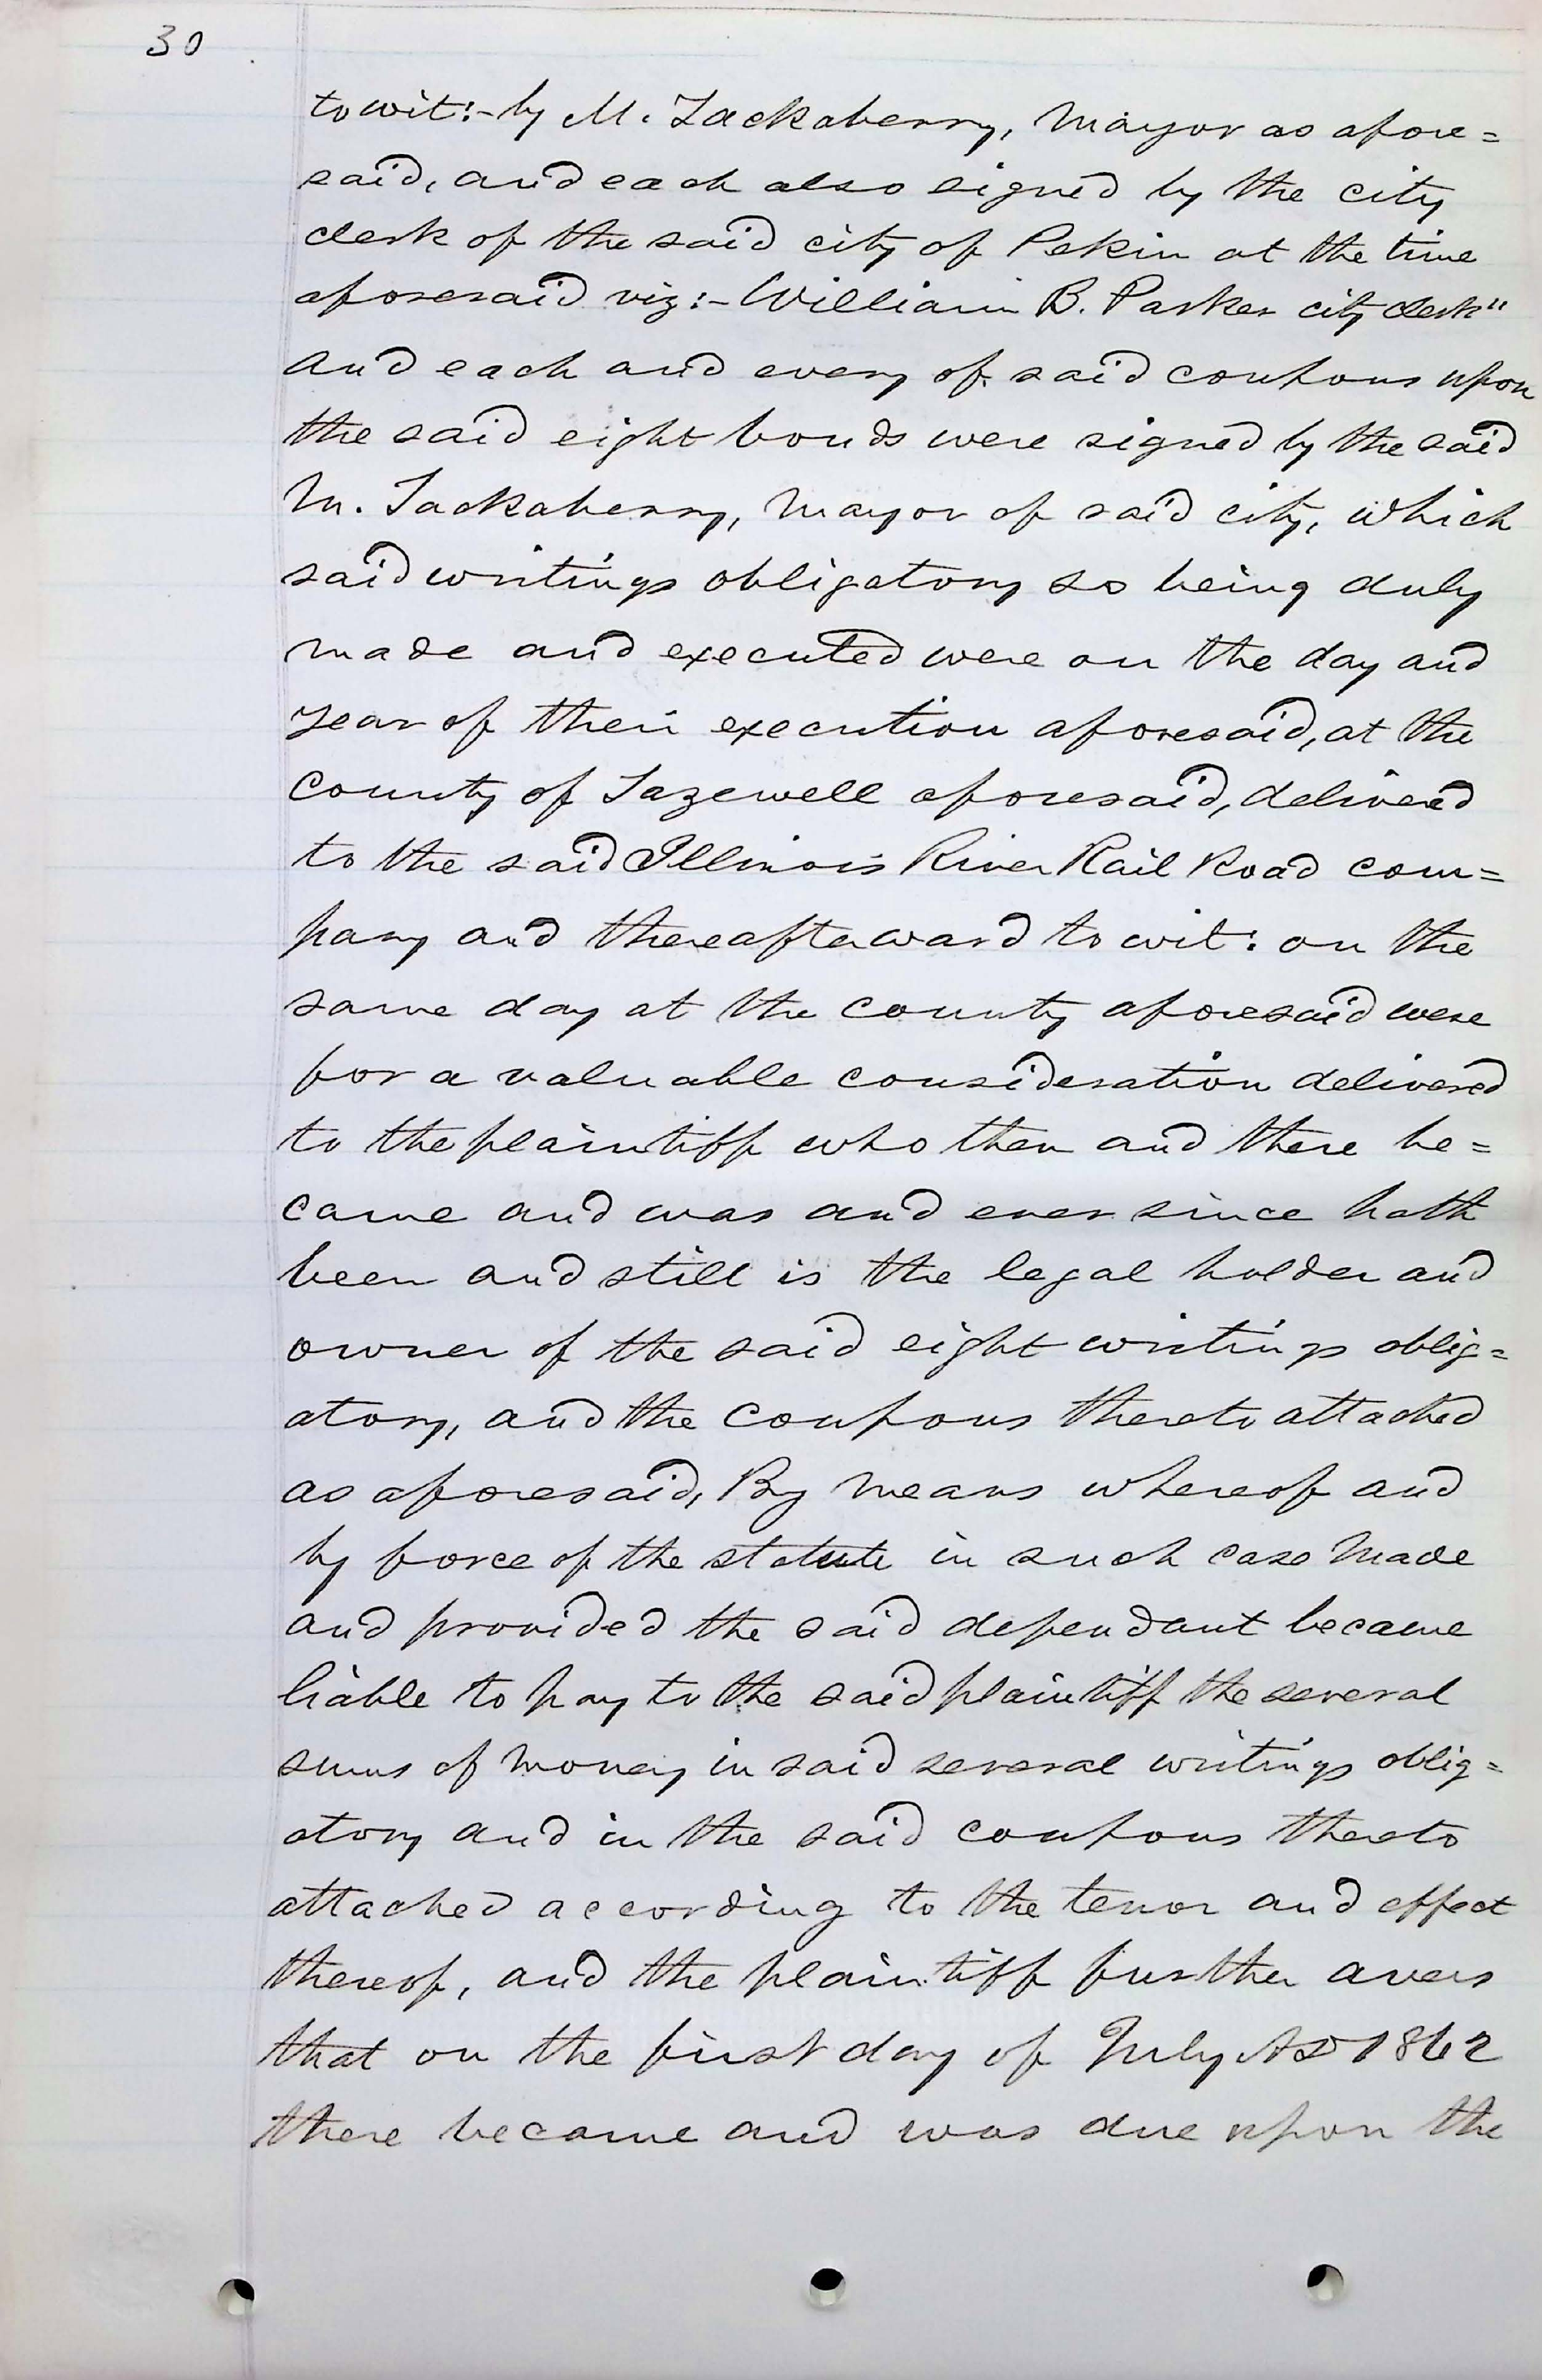 30
to wit:- by M. Tackaberry, Mayor as afore=
said, and each also signed by the city
clerk of the said city of Pekin at the time
aforesaid viz:- William B. Parker city clerk"
and each and every of said coupons upon
the said eight bonds were signed by the said
M. Tackaberry, Mayor of said city, which
said writings obligatory so being duly
made and executed were on the day and
year of their execution aforesaid, at the
county of Tazewell aforesaid, delivered
to the said Illinois River Rail Road com=
pany and thereafterward to wit: on the
same day at the county aforesaid were
for a valuable consideration delivered
to the plaintiff who then and there be=
came and was and ever since hath
been and still is the legal holder and
owner of the said eight writings oblig=
atory, and the coupons thereto attached
as aforesaid, By means whereof and
by force of the statute in such case made
and provided the said defendant became
liable to pay to the said plaintiff the several
sums of money in said several writings oblig=
atory and in the said coupons thereto
attached according to the tenor and effect
thereof, and the plaintiff further avers
that on the first day of July AD 1862
there became and was due upon the